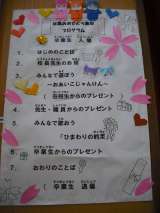 プログラム
卒業生 入場
1. はじめのことば
2. 校長先生のお話
3. みんなで遊ぼう
～おあいこじゃんけん～
4. 在校生からのプレゼント
先生・職員からのプレゼント
5. みんなで歌おう
「ひまわりの約束」
6. 卒業生からのプレゼント
7. おわりのことば
卒業生 退場